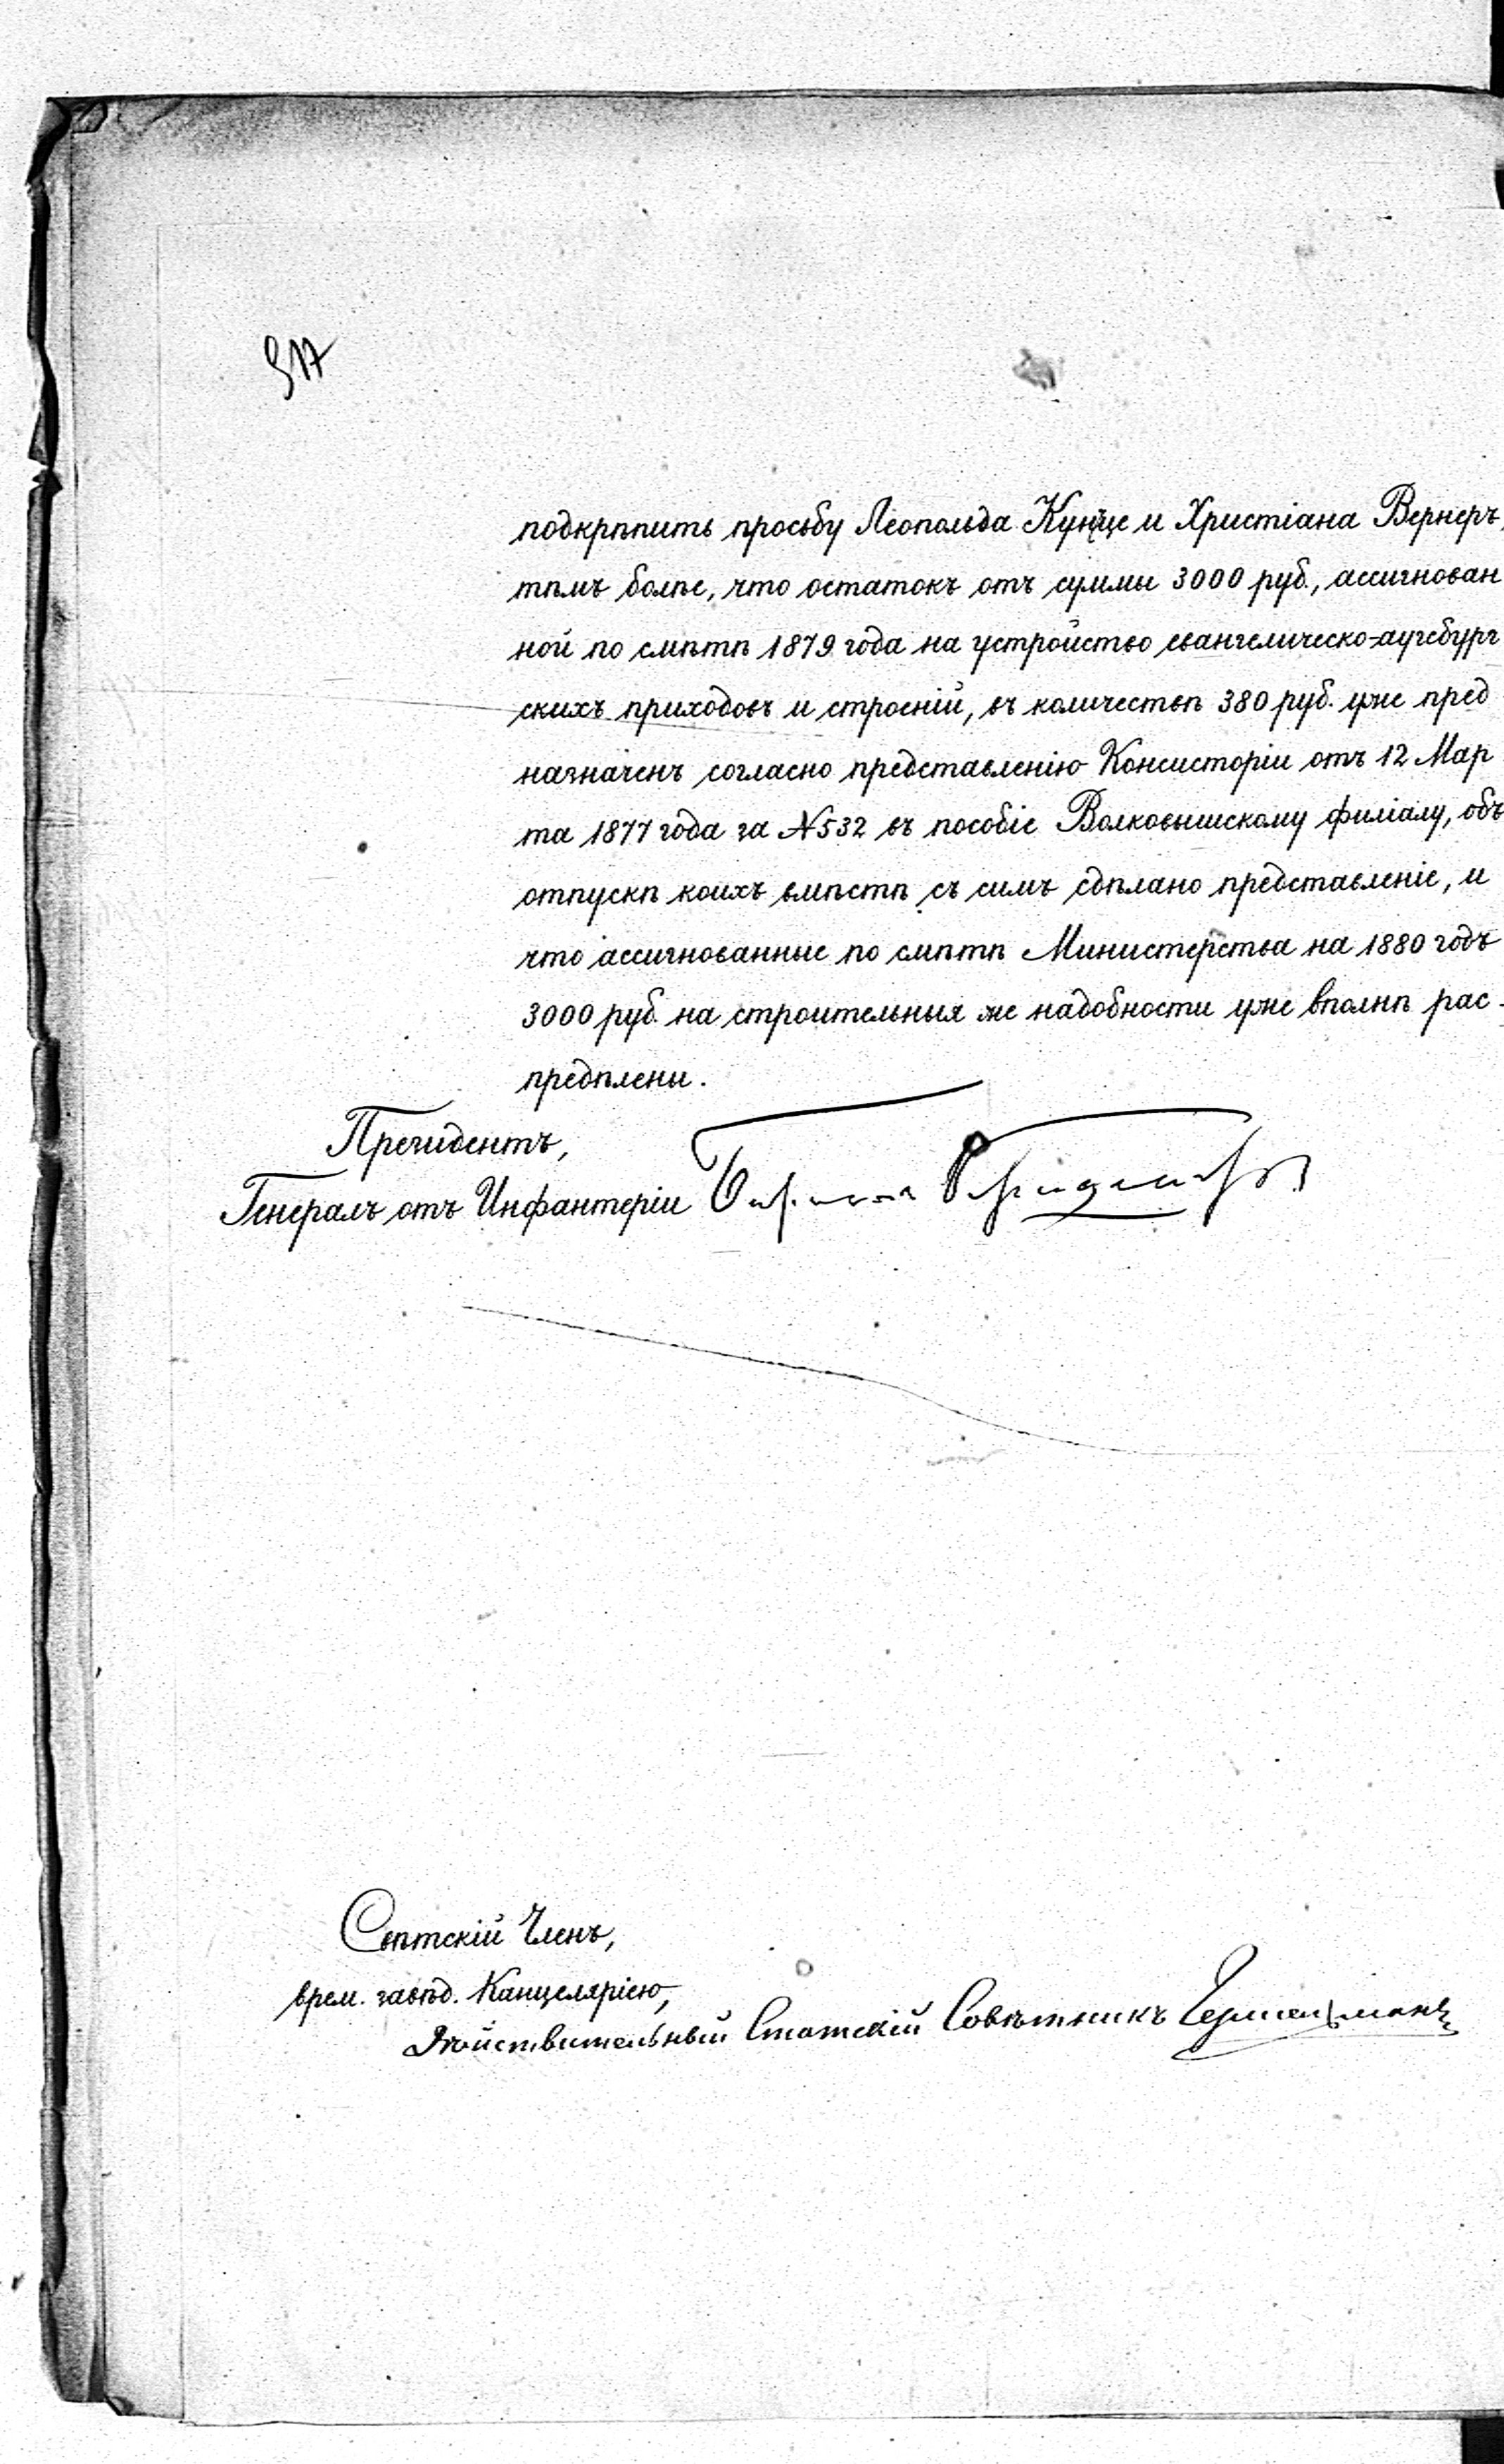 517
подкрѣпить просьбу Леопольда Кунце и Христіана Вернеръ,
тѣмъ болѣе, что остатокъ отъ суммы 3000 руб., ассигнован
ной по смѣтѣ 1879 года на устройство евангелическо-аугсбург
скихъ приходовъ и строеній, въ количествѣ 380 руб. уже пред
назначенъ согласно представленію Консисторіи отъ 12 Мар
та 1877 года за №532 въ пособіе Волковышскому филіалу, объ
отпускѣ коихъ вмѣстѣ съ симъ сдѣлано представленіе, и
что ассигнованные по смѣтѣ Министерства на 1880 годъ
3000 руб. на строительныя же надобности уже вполнѣ рас-
предѣлены.
Президентъ,
Генералъ отъ Инфантеріи
Свѣтскій Членъ,
врем. завѣд. Канцеляріею,
Дѣйствительный Статскій Совѣтникъ